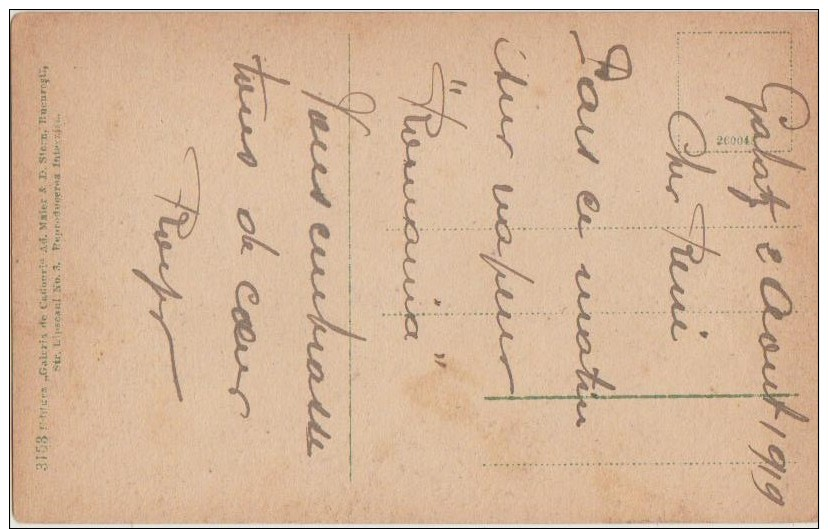 Galatz 2 Aout 1919
Cher René
Pars ce matin
sur vapeur
"Romania"
Vous embrasse
tous de cœur
Roger
260048
3153 Editura „Galeria de Cadouri" Ad. Maier & D. Stern, Bucureşti,
Str. Lipscani No. 3. Reproducerea Interzisă.